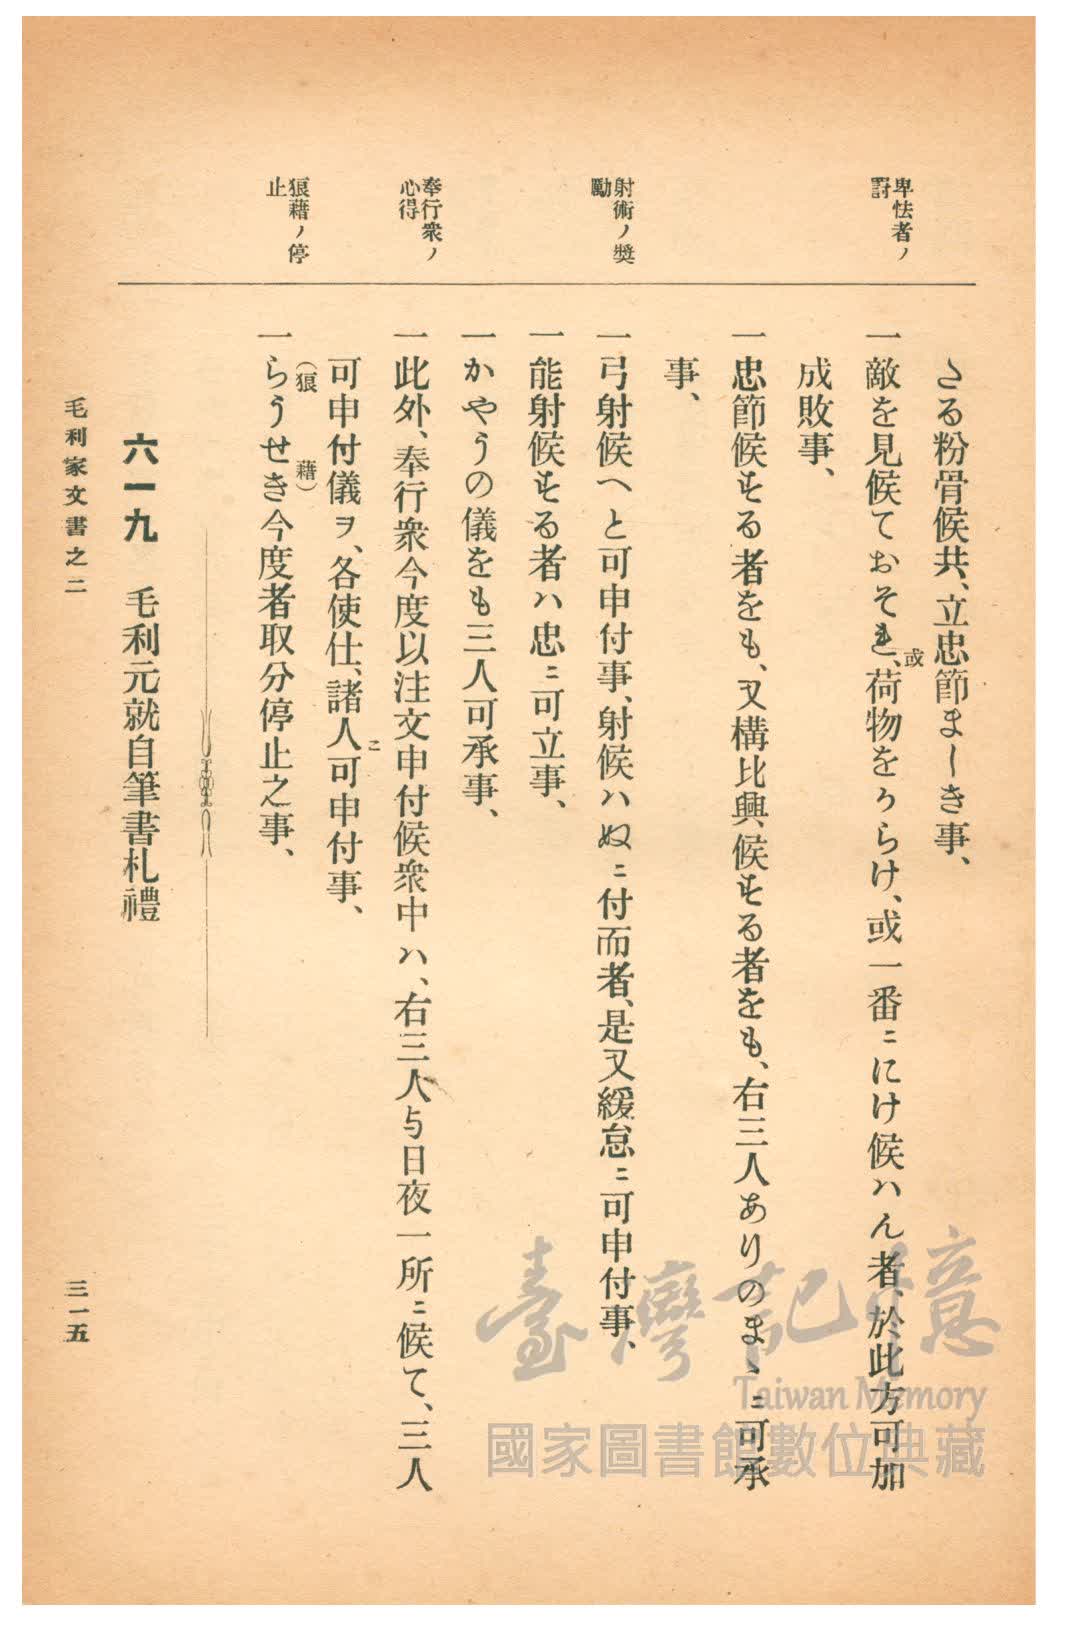 卑怯者ノ
罸
射術ノ奬
勵
奉行衆ノ
心得
狼藉ノ停
止
さる粉骨候共、立忠節ましき事、
一敵を見候ておそれ、荷物をからけ、或一番ニにけ候ハん者、於此方可加
或
成敗事、
一忠節候する者をも、又構比興候する者をも、右三人ありのまゝニ可承
事、
一弓射候へと可申付事、射候ハぬニ付而者、是又緩怠ニ可申付事、
一能射候する者ハ忠ニ可立事、
一かやうの儀をも三人可承事、
一此外、奉行衆今度以注文申付候衆中ハ、右三人与日夜一所ニ候て、三人
可申付儀ヲ、各使仕、諸人ニ可申付事、
(狼藉)
一らうせき今度者取分停止之事、
六一九 毛利元就自筆書札禮
毛利家文書之二
三一五
臺灣記憶
Taiwan Memory
國家圖書館數位典藏